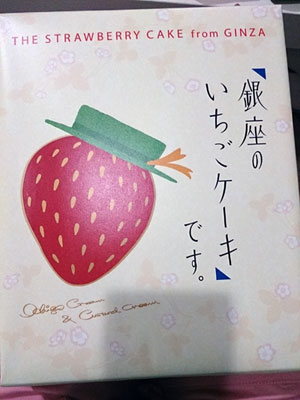 THE STRAWBERRY CAKE from GINZA
「銀座の
いちごケーキ」
です。
Ichigo Cream
& Custard Cream